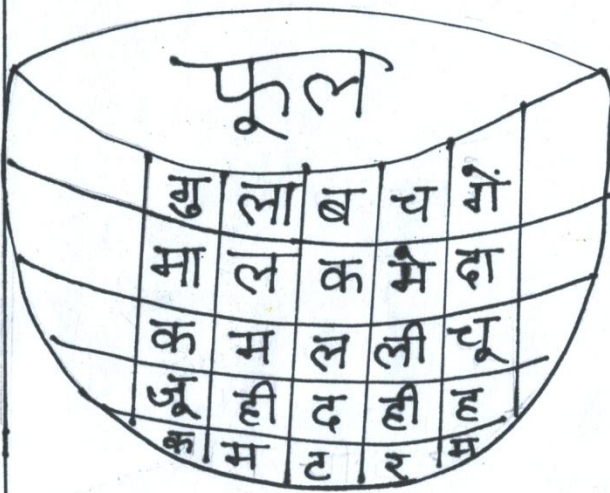 फूल
गु ला ब च गें
मा ल क मे दा
क म ल ली चू
जू ही द ही ह
क म ट र म